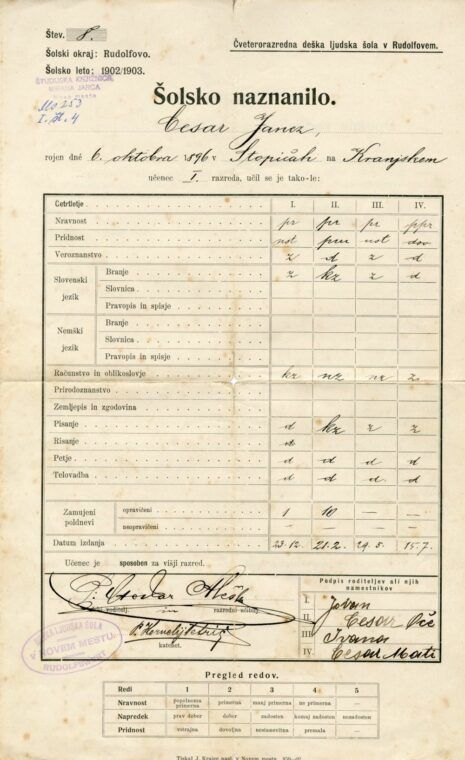 Štev. 8.
Šolski okraj: Rudolfovo.
Šolsko leto: 1902/1903.
Čveterorazredna deška ljudska šola v Rudolfovem.
ŠTUDIJSKA KNJIŽNICA
MIRANA JARCA
Šolsko naznanilo.
Cesar Janez,
rojen dné 6. oktobra 1896 v Stopičah na Kranjskem
učenec I. razreda, učil se je tako-le:
Četrtletje I. II. III. IV.
Nravnost pr pr pr ppr
Pridnost
Veroznanstvo z d z d
Slovenski jezik
Branje z kz z d
Slovnica
Pravopis in spisje
Nemški jezik
Branje
Slovnica
Pravopis in spisje
Računstvo in oblikoslovje kz nz nz z
Prirodoznanstvo
Zemljepis in zgodovina
Pisanje d kz z z
Risanje d
Petje d d d d
Telovadba d d d d
Zamujeni poldnevi
opravičeni 1 10 — —
neopravičeni — — — —
Datum izdania 23.12. 21.2. 29.5. 15.7.
Učenec je sposoben za višji razred.
Podpis roditeljev ali njih namestnikov
in
razredni učitelj.
katehet.
I. Jovan
II. Cesar
III. Ivana
IV. Cesar Mati
V NOVEM MESTU
RUDOLFSWERT
Pregled redov.
Redi 1 2 3 4 5
Nravnost popolnoma primerna primerna manj primerna ne primerna —
Napredek prav dober dober zadosten komaj zadosten nezadosten
Pridnost vztrajna dovoljna nestanovitna premala —